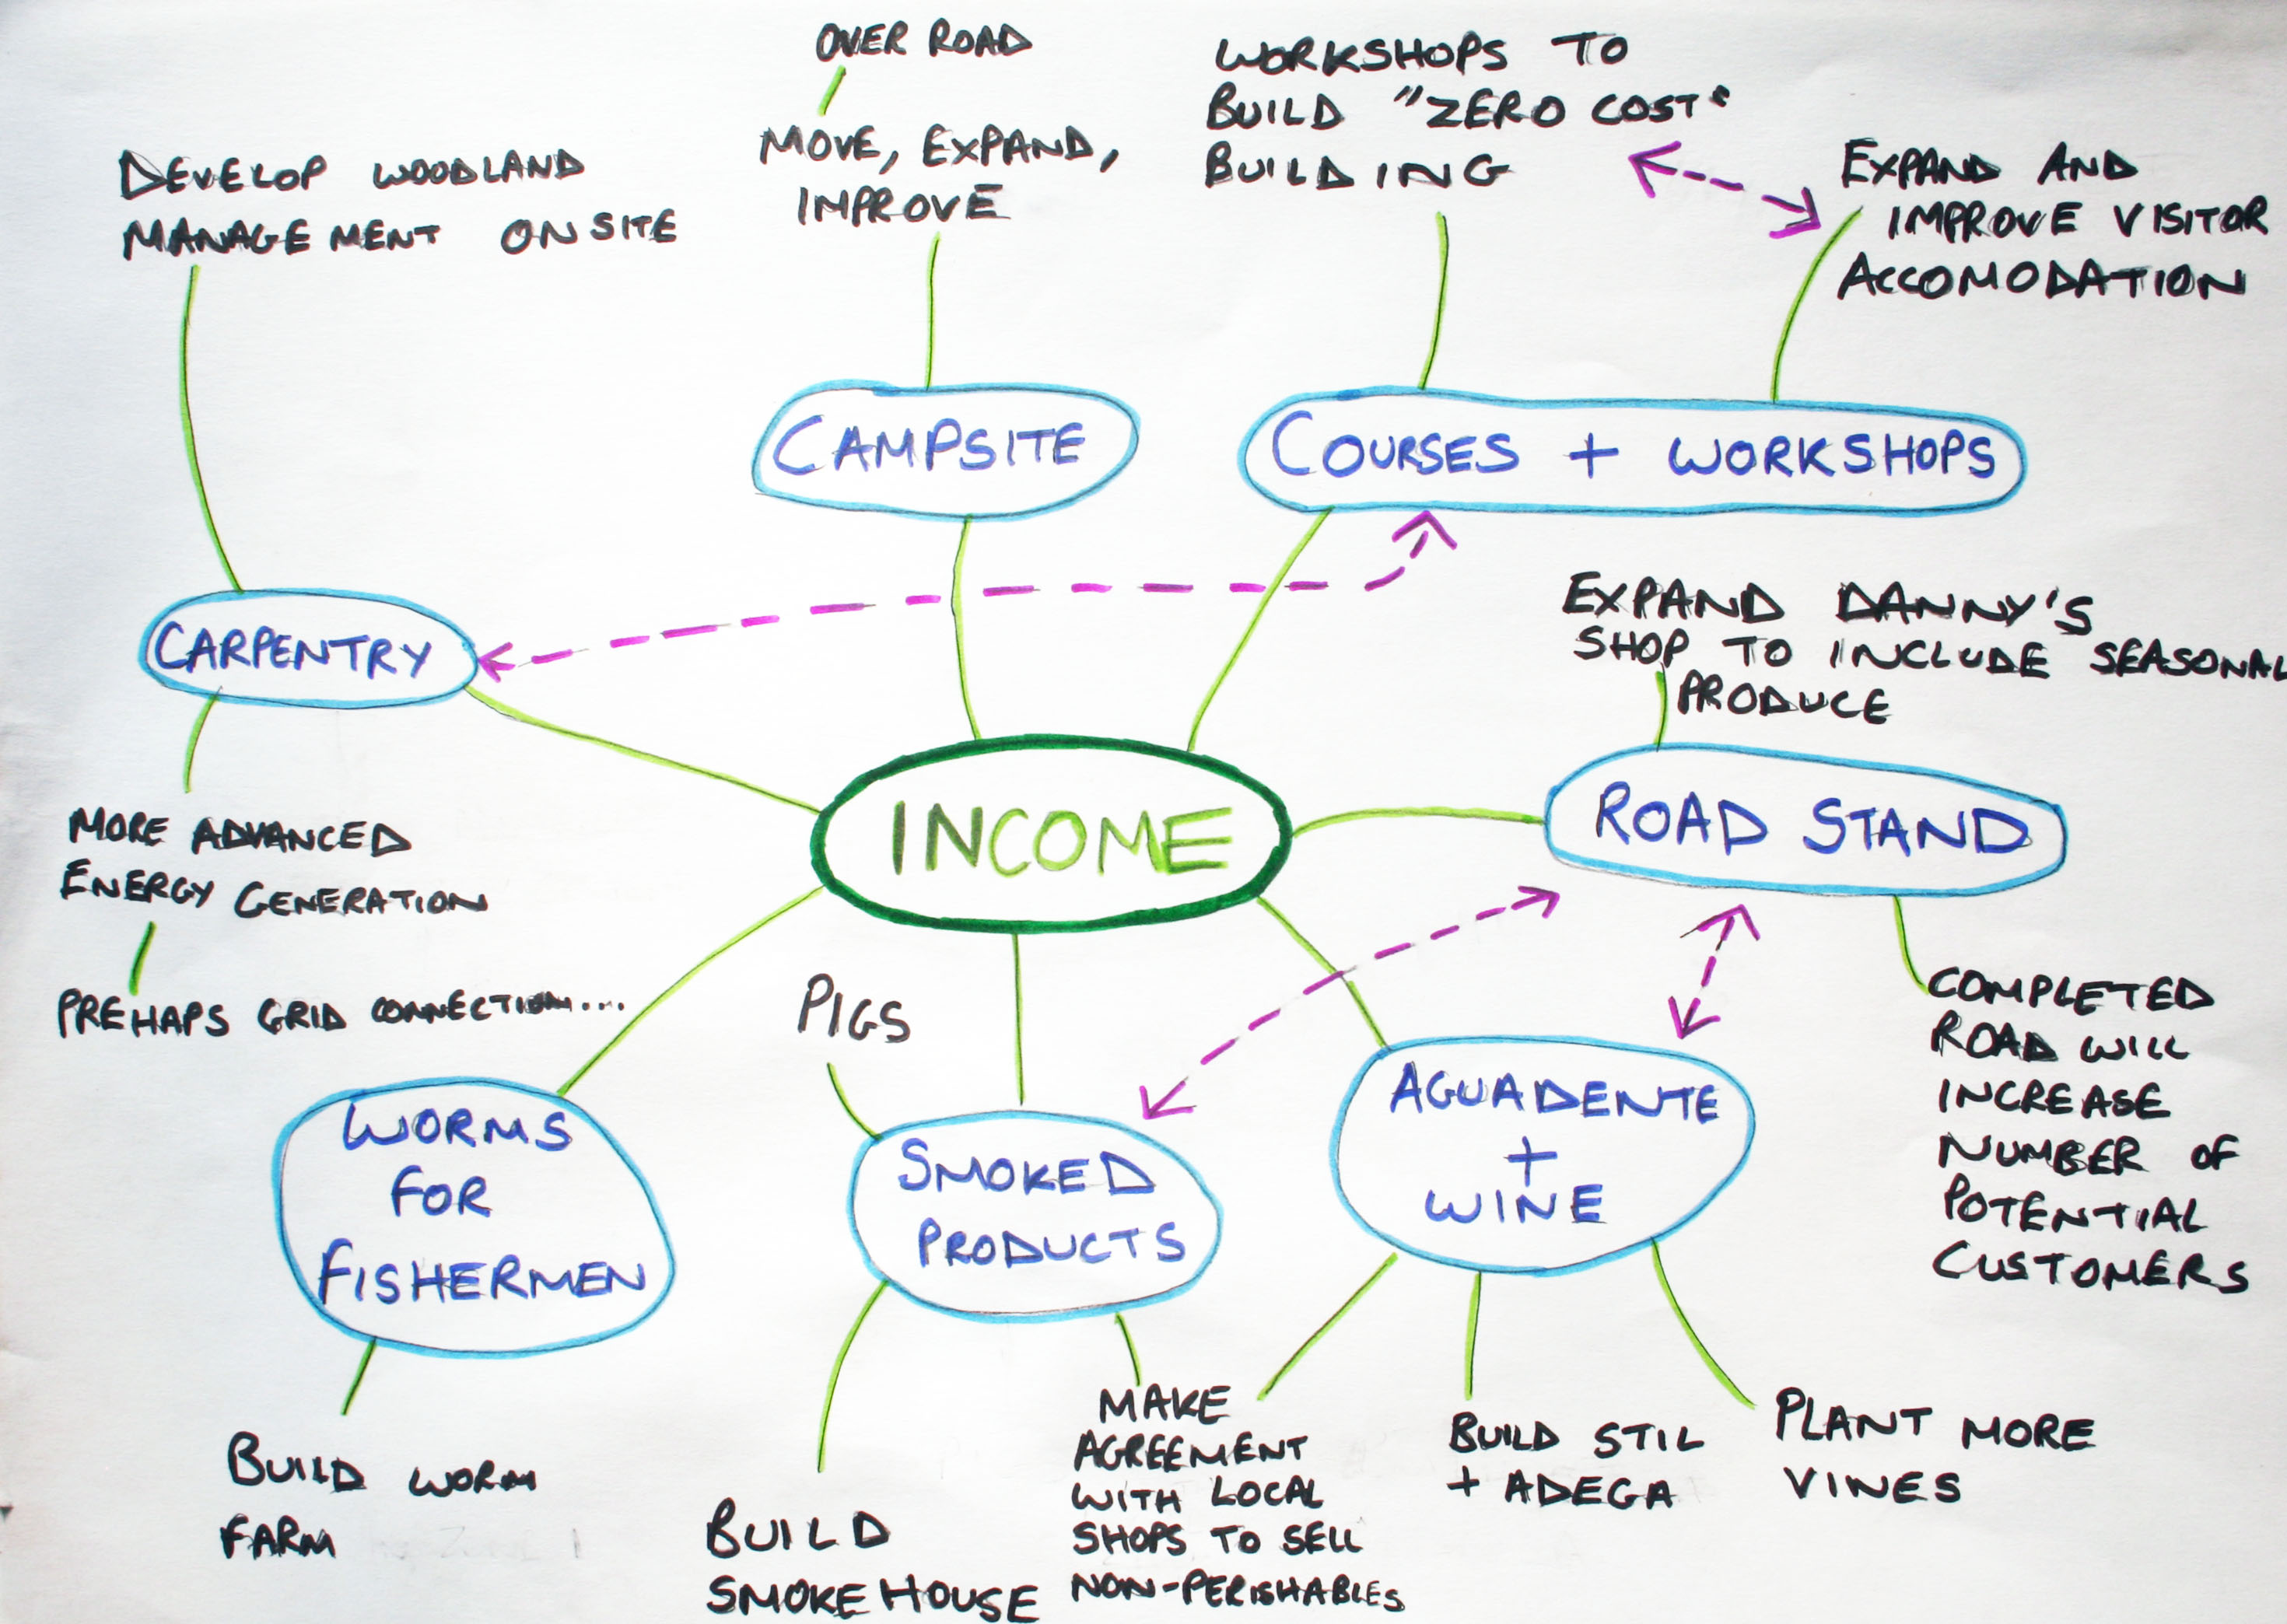 OVER ROAD
MOVE, EXPAND,
IMPROVE
WORKSHOPS TO
BUILD "ZERO COST"
BUILDING
EXPAND AND
IMPROVE VISITOR
ACCOMODATION
DEVELOP WOODLAND
MANAGEMENT ONSITE
CAMPSITE
COURSES + WORKSHOPS
CARPENTRY
EXPAND DANNY'S
SHOP TO INCLUDE SEASONAL
PRODUCE
INCOME
ROAD STAND
MORE ADVANCED
ENERGY GENERATION
PREHAPS GRID CONNECTION...
PIGS
COMPLETED
ROAD WILL
INCREASE
NUMBER OF
POTENTIAL
CUSTOMERS
WORMS
FOR
FISHERMEN
SMOKED
PRODUCTS
AGUADENTE
+
WINE
BUILD WORM
FARM
BUILD
SMOKEHOUSE
MAKE
AGREEMENT
WITH LOCAL
SHOPS TO SELL
NON-PERISHABLES
BUILD STIL
+ ADEGA
PLANT MORE
VINES